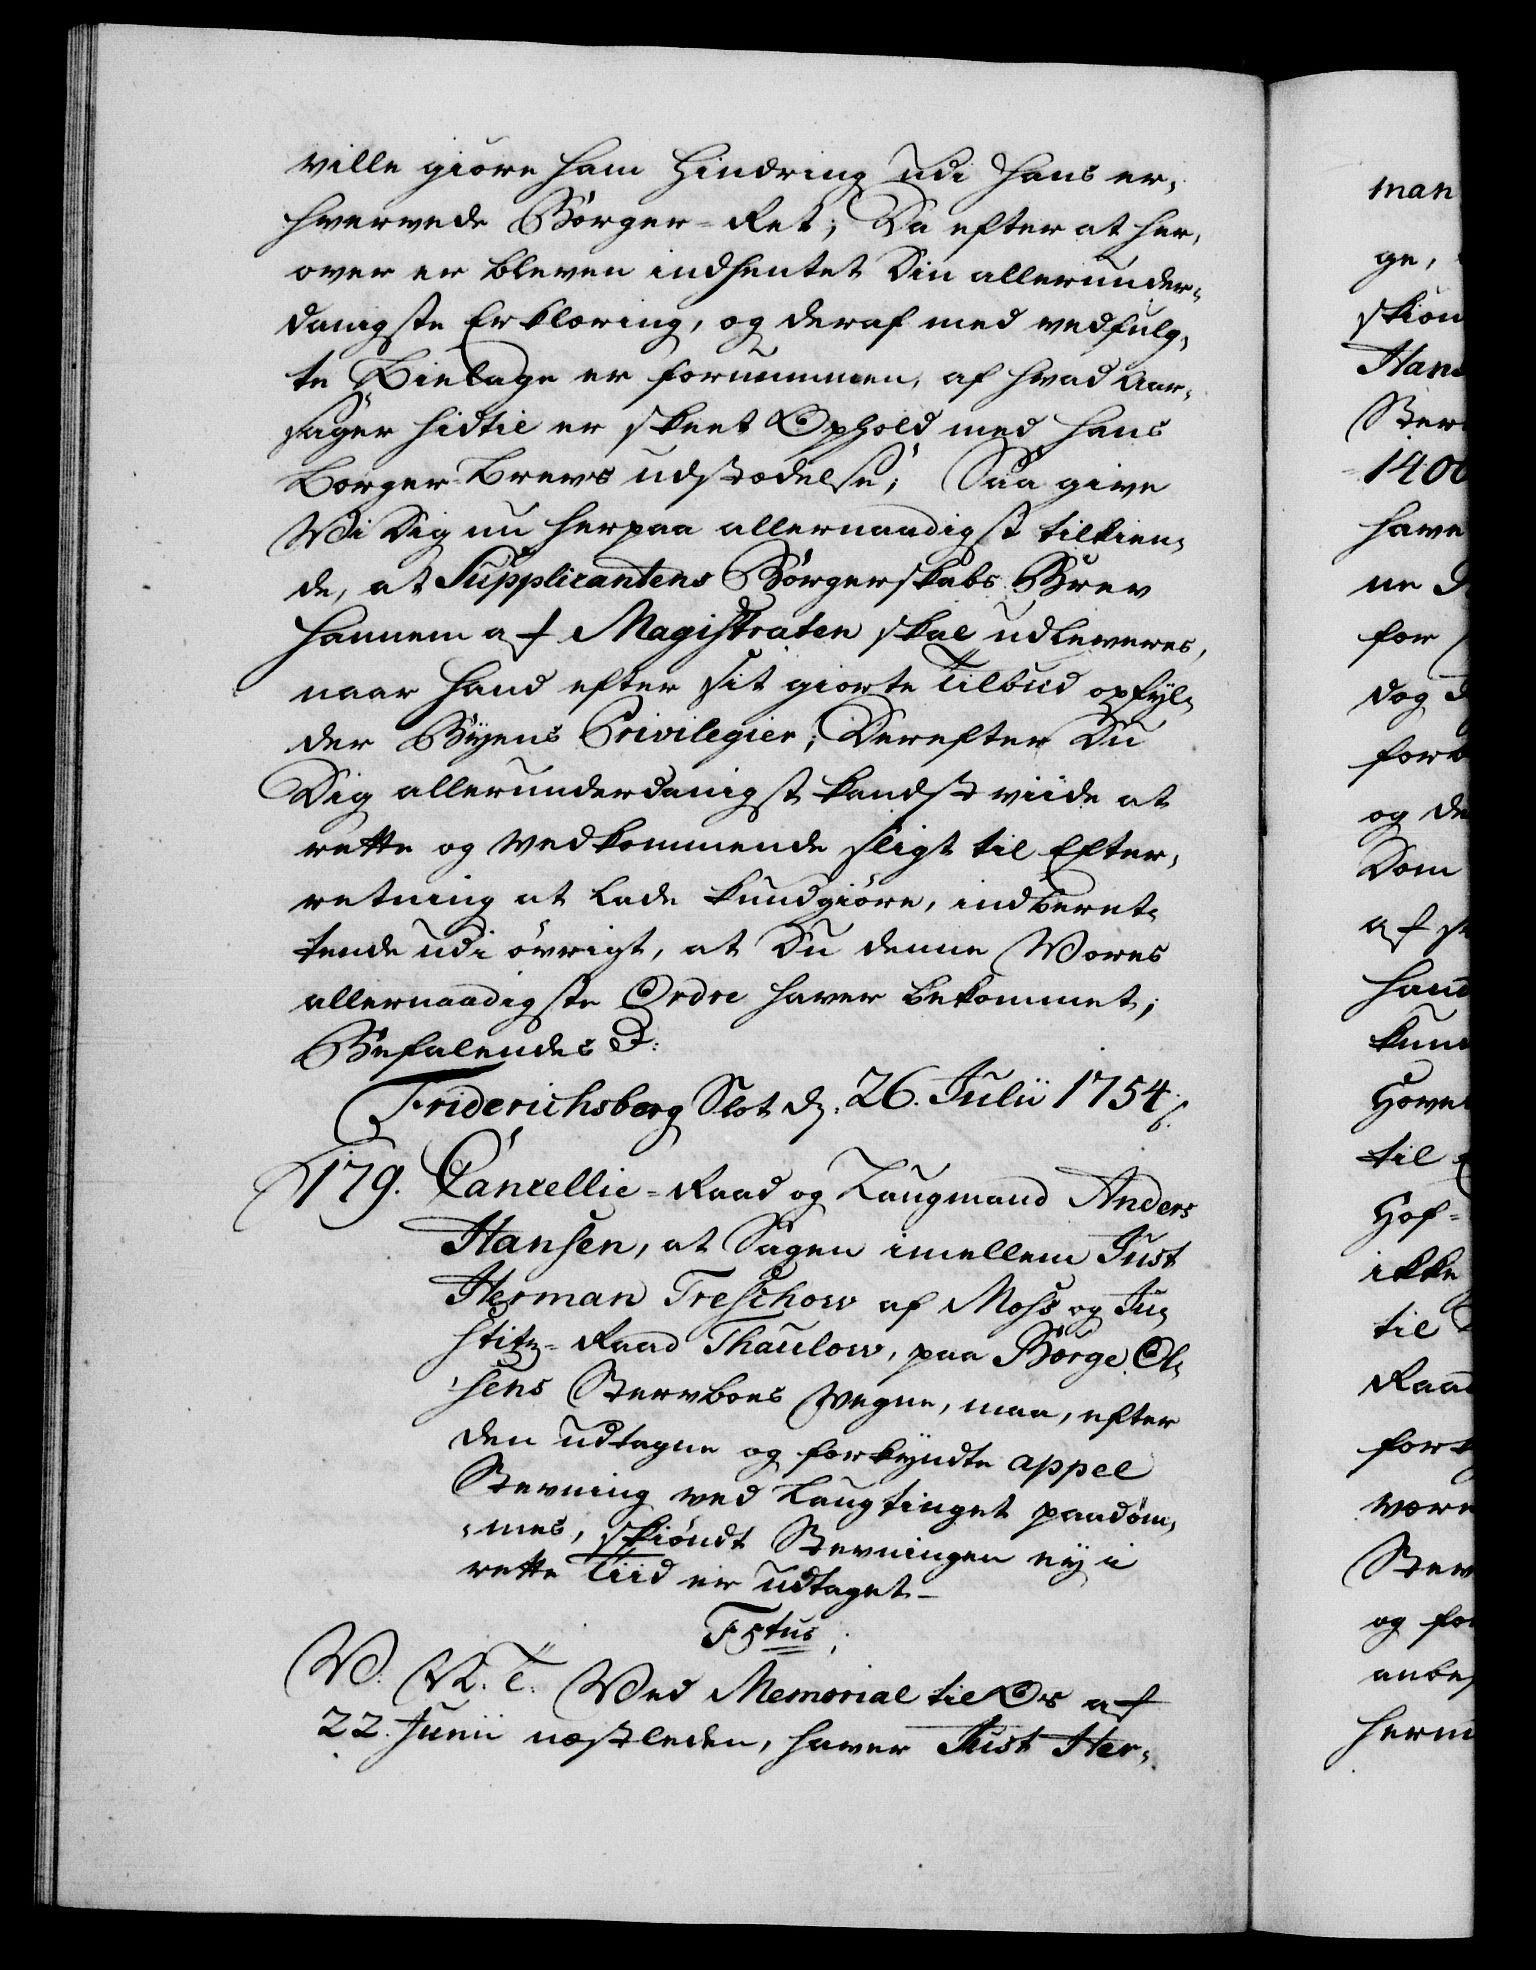 ville giøre ham Hindring udi Hans er-
hvervede Borger-Ret; Da efter at her-
over er bleven indhentet Din allerunder-
danigste Erklæring, og deraf med vedfulg-
te Bielage er fornummen, af hvad Aar-
sager hidtil er skeet Ophold med hans
Borger-Brevs udstædelse; Saa give
Wi Dig nu herpaa allernaadigst tilkien-
de, at Supplicantens Borgerskabs Brev
hannem af Magistraten skal udleveres,
naar hand efter sit giorte Tilbud opfyl-
der Byens Privilegier; Derefter Du
Dig allerunderdanigst kandst viide at
rette og vedkommende sligt til Efter-
retning at lade kundgiøre, indberet-
tende udi øvrigt, at Du denne Vores
allernaadigste Ordre haver bekommet;
Befalendes D:
Friderichsberg Slot d. 26. Julii 1754.
179. Cancellie-Raad og Laugmand Anders
Hansen, at Sagen imellem Just
Herman Treschow af Moss og Ju-
stitz-Raad Thaulow, paa Børge Ol-
sens Stervboes Vegne, maa, efter
den udtagne og forkyndte appel
Stevning ved Laugtinget paadøm-
mes, skiøndt Stevningen ey i
rette Tiid er udtaget-
F5tus
W. V. T. Ved Memorial til Os af
22. Junii næstleden, haver Just Her-
man
ge,
skiøn
Hans
Ster
1400
have
ne D
for
dog
for
og de
Dom
af
hand
kun
Hove
til
Hof-
ikke
til
Raad
fork
være
Stev
og for
anbe
herm